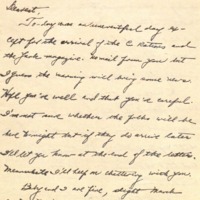 Dearest,
To-day was an uneventful day ex-
cept for the arrival of the C Rations and
the Jack magazine. No mail from you but
I guess the morning will bring some news
Hope you're well and that you're careful.
I'm not sure whether the folks will be
here tonight but if they do arrive later
I'll let you know at the end of the letter.
Meanwhile I'll keep on chattering with you.
Baby and I are fine, slight